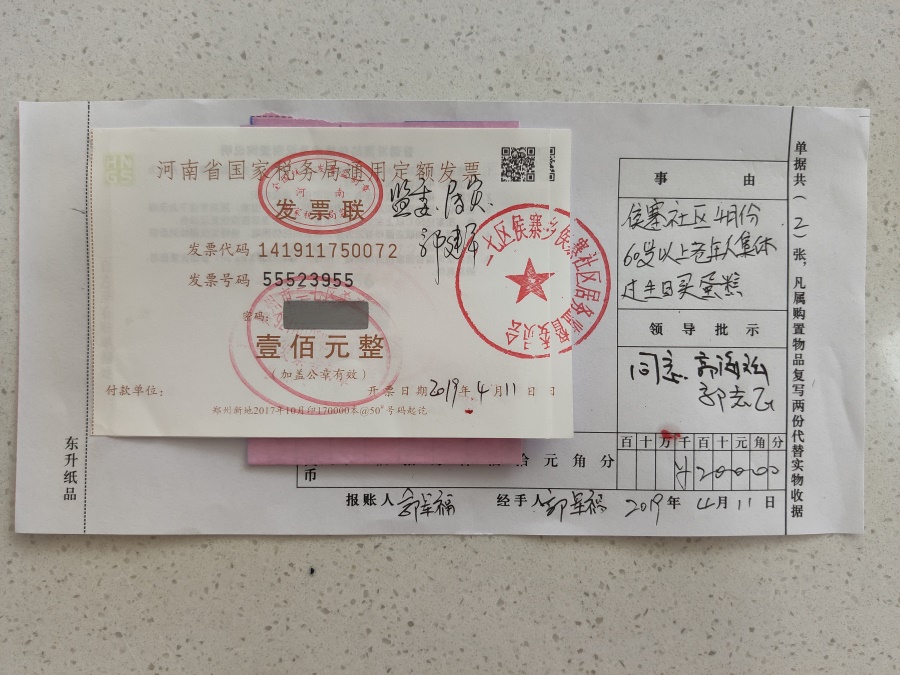 河南省国家税务局通用定额发票
河南
发票联
发票代码 141911750072
发票号码 55523955
密码:
壹佰元整
(加盖公章有效)
付款单位:
开票日期 2019年4月11日
郑州新地2017年10月印170000本@50#号码起讫
监委
二七区侯寨乡侯寨社区居务监督委员会
事由
侯寨社区4月份
60岁以上老年人集体
过生日买蛋糕
领导批示
同意
百十万千百十元角分
¥200000
拾元角分
币
报账人 经手人 2019年4月11日
单据共(三)张,凡属购置物品复写两份代替实物收据
东升纸品